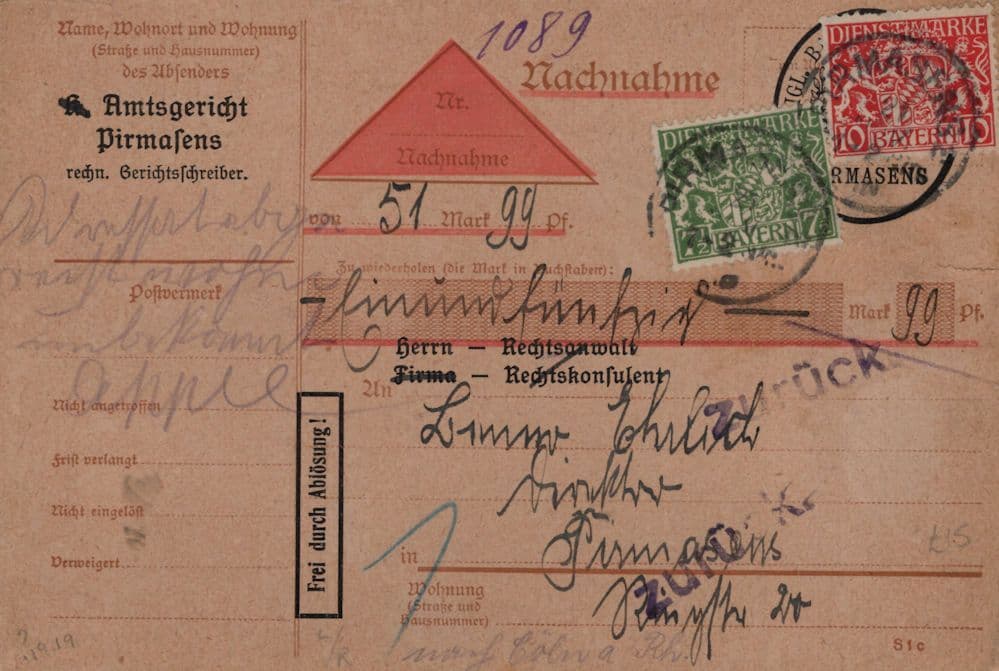 Name, Wohnort und Wohnung
(Straße und Hausnummer)
des Absenders
K. Amtsgericht
Pirmasens
rechn. Gerichtsschreiber.
1089
Nachnahme
Nr.
Nachnahme
von 51 Mark 99 Pf.
DIENSTMARKE
10 BAYERN 10
DIENSTMARKE
7½ BAYERN 7½
PIRMASENS
RMASENS
Zu wiederholen (die Mark in Buchstaben):
Einundfünfzig Mark 99 Pf.
Adressat
unbekannt
Appel
Postvermerk
Nicht angetroffen
Frist verlangt
Nicht eingelöst
Verweigert
Frei durch Ablösung!
Herrn – Rechtsanwalt
Firma – Rechtskonsulent
An
Benno Ehrlich
Direktor
in Pirmasens
Wohnung
(Straße und
Hausnummer)
Zurück
Zurück
nach Cöln a Rh.
S1c